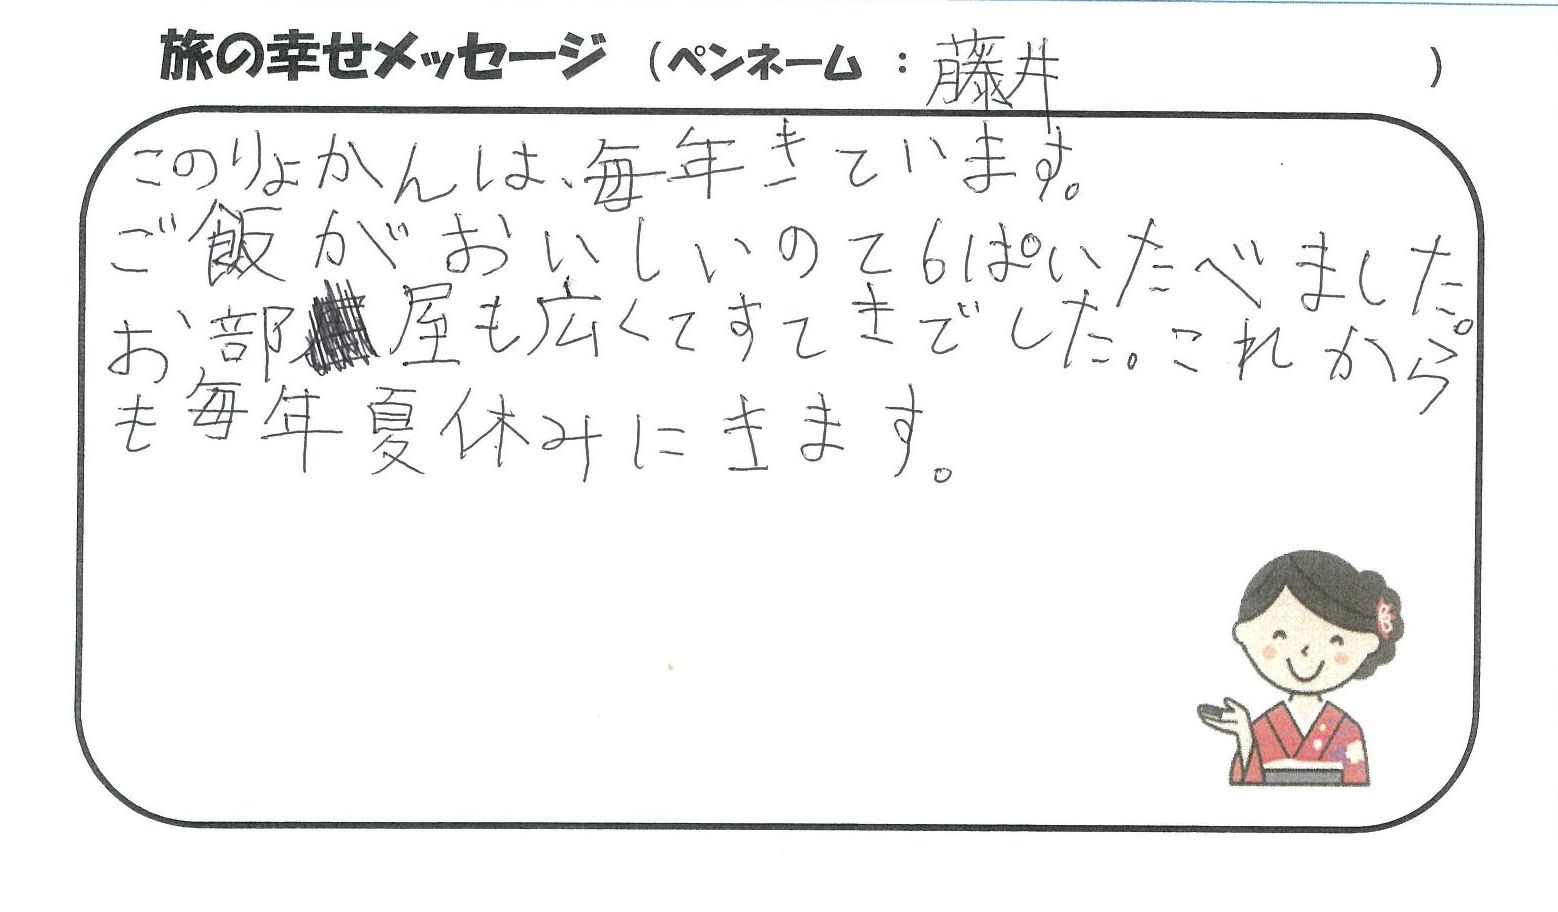 旅の幸せメッセージ (ペンネーム : 藤井 )
このりょかんは、毎年きています。
ご飯がおいしいのて6ぱいたべました。
お部屋も広くてすてきでした。これから
も毎年夏休みにきます。